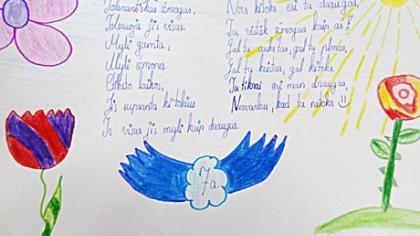 Tolerantiškas žmogus,
Toleruoja jis visus.
Myli gamtą,
Myli žmones.
Jis supranta kitokius
Ir visus jis myli kaip draugus.
Nors kitoks esi tu draugas,
Tu vistiek žmogus kaip aš!
Gal tu aukštas, gal tu plonas,
Gal tu keistas, gal kitoks.
Tu tikrai esi man draugas,
Nesvarbu, kad tu kitoks !!
7a